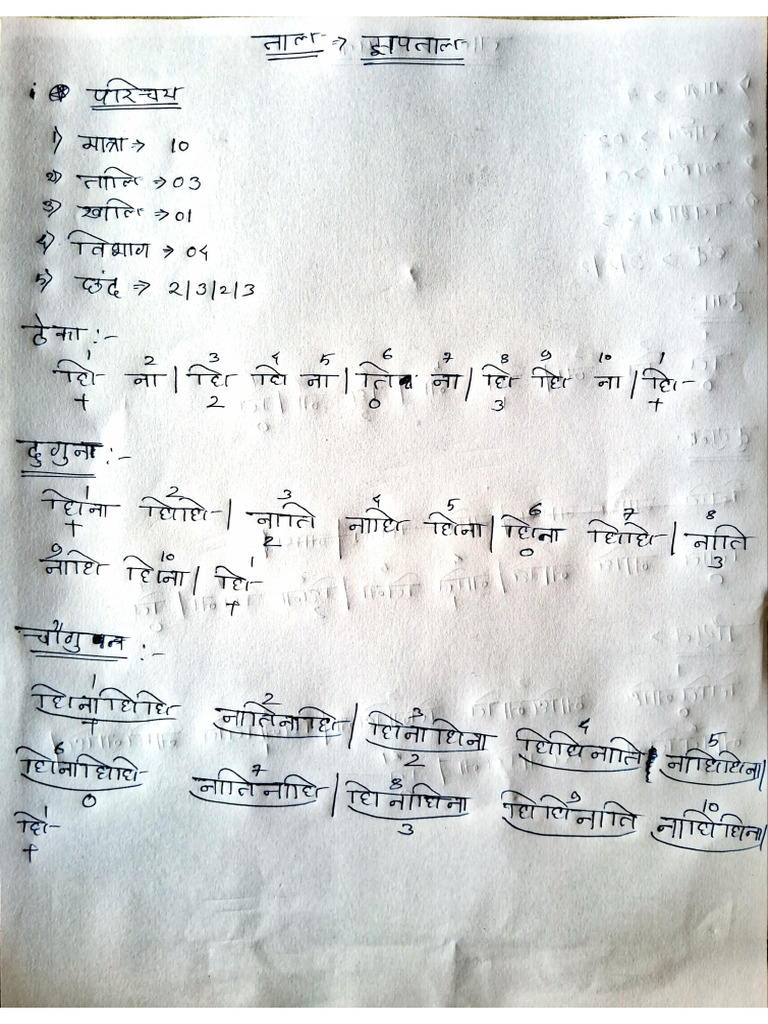 ताल ⇒ झपताल
i परिचय
1) मात्रा ⇒ 10
2) तालि ⇒ 03
3) खालि ⇒ 01
4) विभाग ⇒ 04
5) छंद ⇒ 2/3/2/3
ठेका :-
1 2 3 4 5 6 7 8 9 10 1
धि ना | धि धि ना | ति ना | धि धि ना | धि-
+ 2 0 3 +
दुगुन :-
1 2 3 4 5 6 7 8
धिना धिधि | नाति नाधि धिना | धिना धिधि | नाति
+ 2 0 3
9 10 1
नाधि धिना | धि-
+
चौगुन :-
1 2 3 4 5
धिनाधिधि नातिनाधि | धिनाधिना धिधिनाति नाधिधिना |
+ 2
6 7 8 9 10
धिनाधिधि नातिनाधि | धिनाधिना धिधिनाति नाधिधिना |
0 3
1
धि-
+